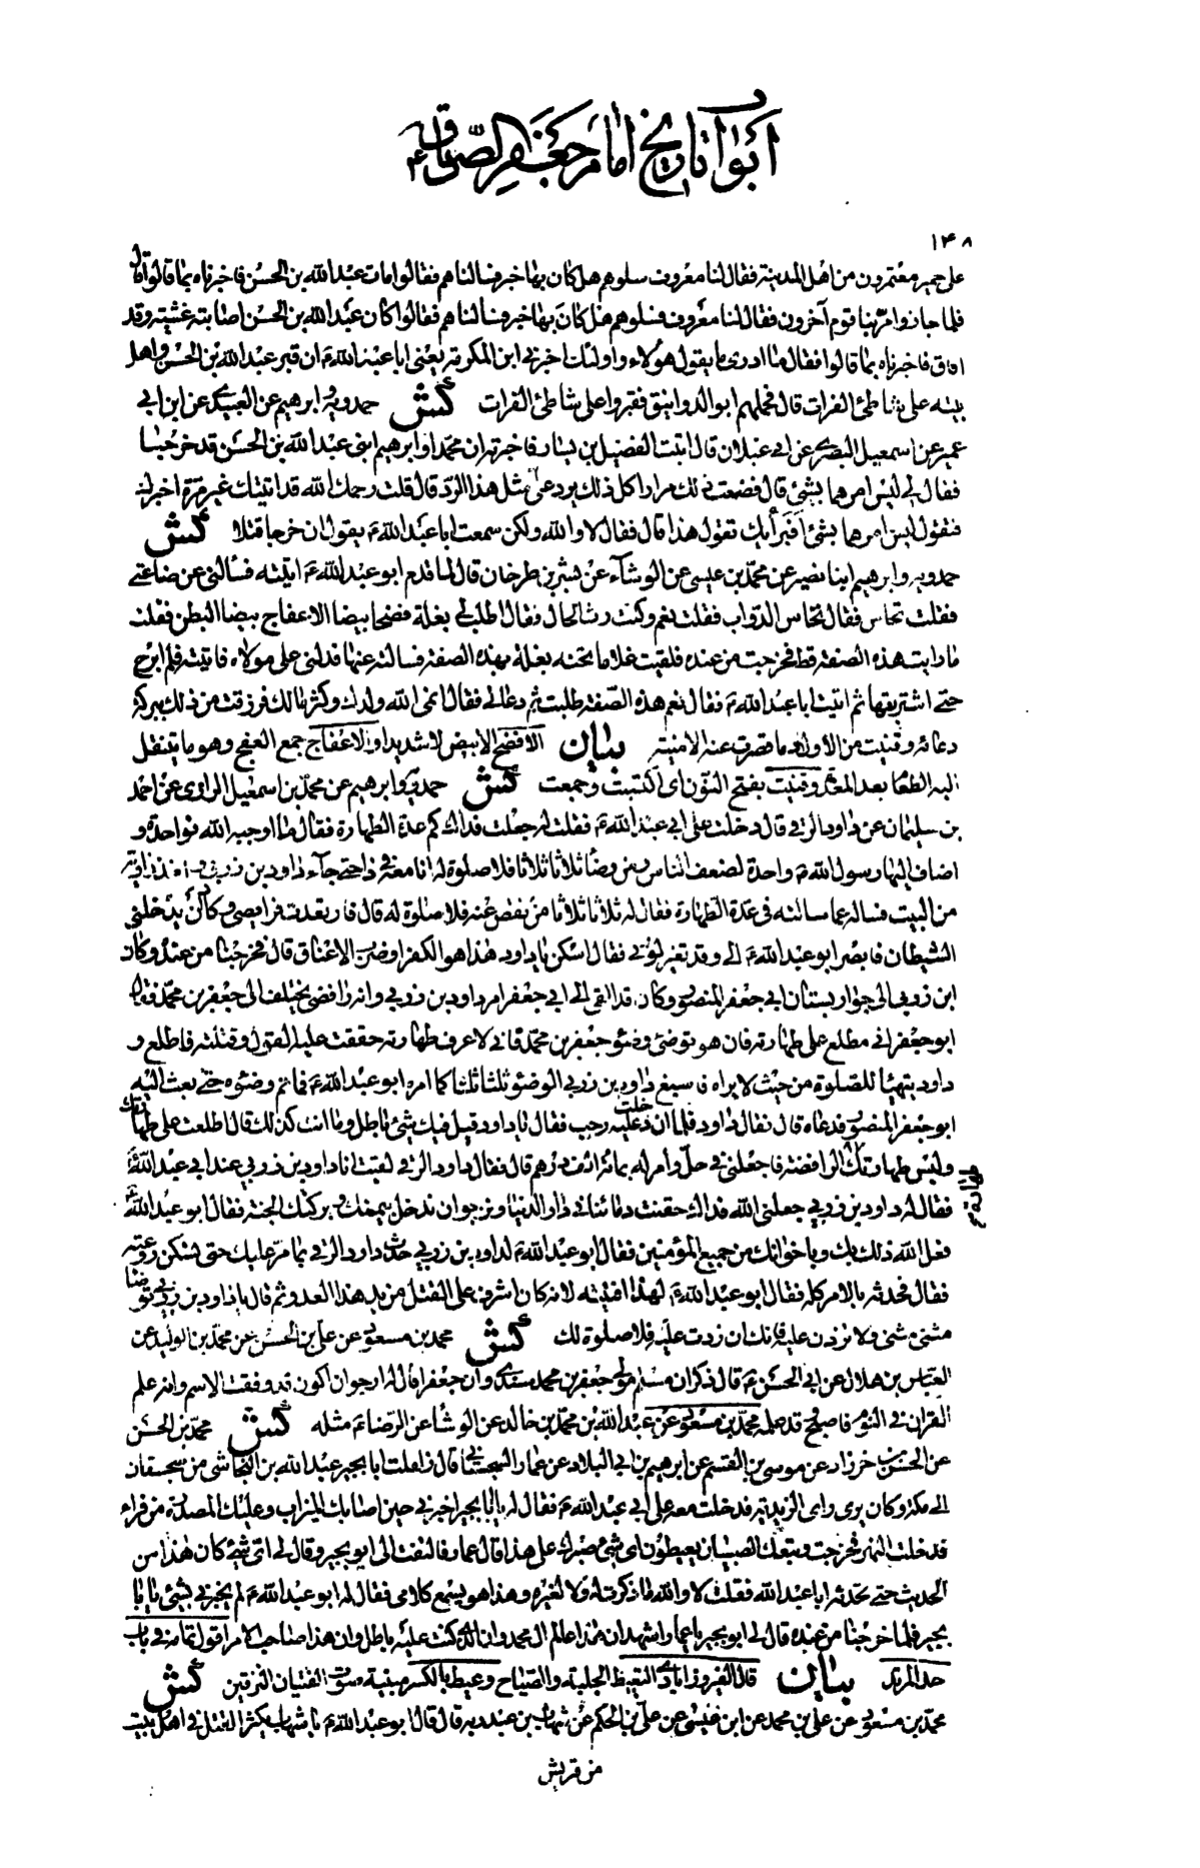 أبواب تاريخ إمام جعفر الصادق ع
١٤٨
على حمير معتمرون من أهل المدينة فقال لنا معروف سلوهم هل كان بها خبر فسألناهم فقالوا مات عبد الله بن الحسن فأخبرناه بما قالوا قال
فلما جازوا مر بنا قوم آخرون فقال لنا معروف فسلوهم هل كان بها خبر فسألناهم فقالوا كان عبد الله بن الحسن أصابته غشية وقد
افاق فاخبرناه بما قالوا فقال ما ادرى ما يقول هؤلاء واولئك اخبرني ابن المكرمة يعنى ابا عبد الله ع ان قبر عبد الله بن الحسن واهل
بيته على شاطئ الفرات قال فحملهم ابو الدوانيق فقبروا على شاطئ الفرات كش حمدويه وابرهيم عن العبيدي عن ابن ابي
عمير عن اسمعيل البصري عن ابي غيلان قال اتيت الفضيل بن يسار فاخبرته ان محمدا وابرهيم ابنى عبد الله بن الحسن قد خرجا
فقال لي ليس امرهما بشئ قال فصنعت ذلك مرارا كل ذلك يرد على مثل هذا الرد قال قلت رحمك الله قد اتيتك غير مرة اخبرك
فتقول ليس امرهما بشئ أفبرأيك تقول هذا قال فقال لا والله ولكن سمعت ابا عبد الله ع يقول ان خرجا قتلا كش
حمدويه وابرهيم ابنا نصير عن محمد بن عيسى عن الوشاء عن بشر بن طرخان قال لما قدم ابو عبد الله ع اتيته فسألني عن صناعتي
فقلت نخاس فقال نخاس الدواب فقلت نعم وكنت رث الحال فقال اطلب لي بغلة فضحا بيضا الاعفاج بيضا البطن فقلت
ما رايت هذه الصفة قط فخرجت من عنده فلقيت غلاما تحته بغلة بهذه الصفة فسالته عنها فدلنى على مولاه فاتيته فلم ابرح
حتى اشتريتها ثم اتيت ابا عبد الله ع فقال نعم هذه الصفة طلبت ثم دعا لي فقال انمى الله ولدك وكثر مالك فرزقت من ذلك ببركة
دعائه وقنيت من الأولاد ما قصرت عنه الامنية بيان الافضح الابيض لا شديدا والاعفاج جمع العفج وهو ما ينتقل
اليه الطعام بعد المعدة وقنيت بفتح النون اى اكتسبت وجمعت كش حمدويه وابرهيم عن محمد بن اسمعيل الرازى عن احمد
بن سليمان عن داود الرقي قال دخلت على ابي عبد الله ع فقلت له جعلت فداك كم عدة الطهارة فقال ما اوجبه الله فواحدة و
اضاف اليها رسول الله ص واحدة لضعف الناس ومن توضأ ثلاثا ثلاثا فلا صلوة له انا معه في ذا حتى جاء داود بن زربي
من البيت فساله عما سالته في عدة الطهارة فقال له ثلاثا ثلاثا من نقص عنه فلا صلوة له قال فارتعدت فرايصي وكاد أن يدخلني
الشيطان فابصر ابو عبد الله ع الي وقد تغير لوني فقال اسكن يا داود هذا هو الكفر او ضرب الاعناق قال فخرجنا من عنده وكان
ابن زربي الى جوار بستان ابي جعفر المنصور وكان قد القي الى ابي جعفر امر داود بن زربي وانه رافضي يختلف الى جعفر بن محمد فقال
ابو جعفر اني مطلع على طهارته فان هو توضئ وضوء جعفر بن محمد فاني لاعرف طهارته حققت عليه القول وقتلته فاطلع و
داود يتهيأ للصلوة من حيث لا يراه فاسبغ داود بن زربي الوضوء ثلثا ثلثا كما امره ابو عبد الله ع فما تم وضوءه حتى بعث اليه
ابو جعفر المنصور فدعاه قال فقال داود فلما ان دخلت عليه رحب فقال يا داود قيل فيك شئ باطل وما انت كذلك قال اطلعت على طهارتك
وليس طهارتك طهارة الرافضة فاجعلني في حل وامر له بمائة الف درهم قال فقال داود الرقي لقيت انا داود بن زربي عند ابي عبد الله ع
فقال له داود بن زربي جعلني الله فداك حقنت دمائنا في دار الدنيا ونرجو ان ندخل بيمنك وبركتك الجنة فقال ابو عبد الله ع
فعل الله ذلك بك وباخوانك من جميع المؤمنين فقال ابو عبد الله ع لداود بن زربي حدث داود الرقي بما مر عليك حتى تسكن روعته
فقال فحدثته بالامر كله فقال ابو عبد الله ع لهذا افتيته لانه كان اشرف على القتل من يد هذا العدو ثم قال يا داود بن زربي توضأ
مثنى مثنى ولا تزدن عليه فانك ان زدت عليه فلا صلوة لك كش محمد بن مسعود عن علي بن الحسن عن محمد بن الوليد عن
العباس بن هلال عن ابي الحسن ع قال ذكر ان مسلم مولى جعفر بن محمد سندي وان جعفرا قال له ارجو ان اكون قد وفقت الاسم وانه علم
القران في النوم فاصبح قد علمه محمد بن مسعود عن عبد الله بن محمد بن خالد عن الوشا عن الرضا ع مثله كش محمد بن الحسن
عن الحسن بن خرزاد عن موسى بن القسم عن ابرهيم بن ابي البلاد عن عمار السجستاني قال زاملت ابا بجير عبد الله بن النجاشي من سجستان
الى مكة وكان يرى راى الزيدية فدخلت معه على ابي عبد الله ع فقال له يا ابا بجير اخبرني حين اصابك الميزاب وعليك المصدرة من فراء
فدخلت النهر فخرجت وتبعك الصبيان يعيطون اى شئ صبرك على هذا قال عمار فالتفت الى ابو بجير وقال لي اى شئ كان هذا من
الحديث حتى تحدثه ابا عبد الله فقلت لا والله ما ذكرت له ولا لغيره وهذا هو يسمع كلامى فقال له ابو عبد الله ع لم يخبرني بشئ يا ابا
بجير فلما خرجنا من عنده قال لي ابو بجير يا عمار اشهد ان هذا عالم ال محمد وان الذي كنت عليه باطل وان هذا صاحب الامر اقول تمامه في باب
حد المرتد بيان قال الفيروزابادي التعيط الجلبة والصياح وعيط بالكسر مبنية صوت الفتيان النزقين كش
محمد بن مسعود عن علي بن محمد عن ابن عيسى عن علي بن الحكم عن شهاب بن عبد ربه قال قال ابو عبد الله ع يا شهاب يكثر القتل في اهل بيت
من قريش